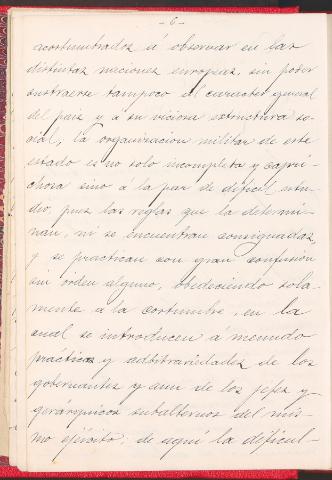 - 6 -
acostumbrados á observar en las
distintas naciones europeas, sin poder
sustraerse tampoco al caracter general
del pais y a su viciosa estructura so-
cial, la organizacion militar de este
estado es no solo incompleta y capri-
chosa sino á la par de dificil estu-
dio, pues las reglas que la determi-
nan, ni se encuentran consignadas,
y se practican con gran confusion
sin orden alguno, obedeciendo sola-
mente á la costumbre, en la
cual se introducen á menudo
practicas y arbitrariedades de los
gobernantes y aun de los jefes y
gerarquicos subalternos del mis-
mo ejército; de aquí la dificul-